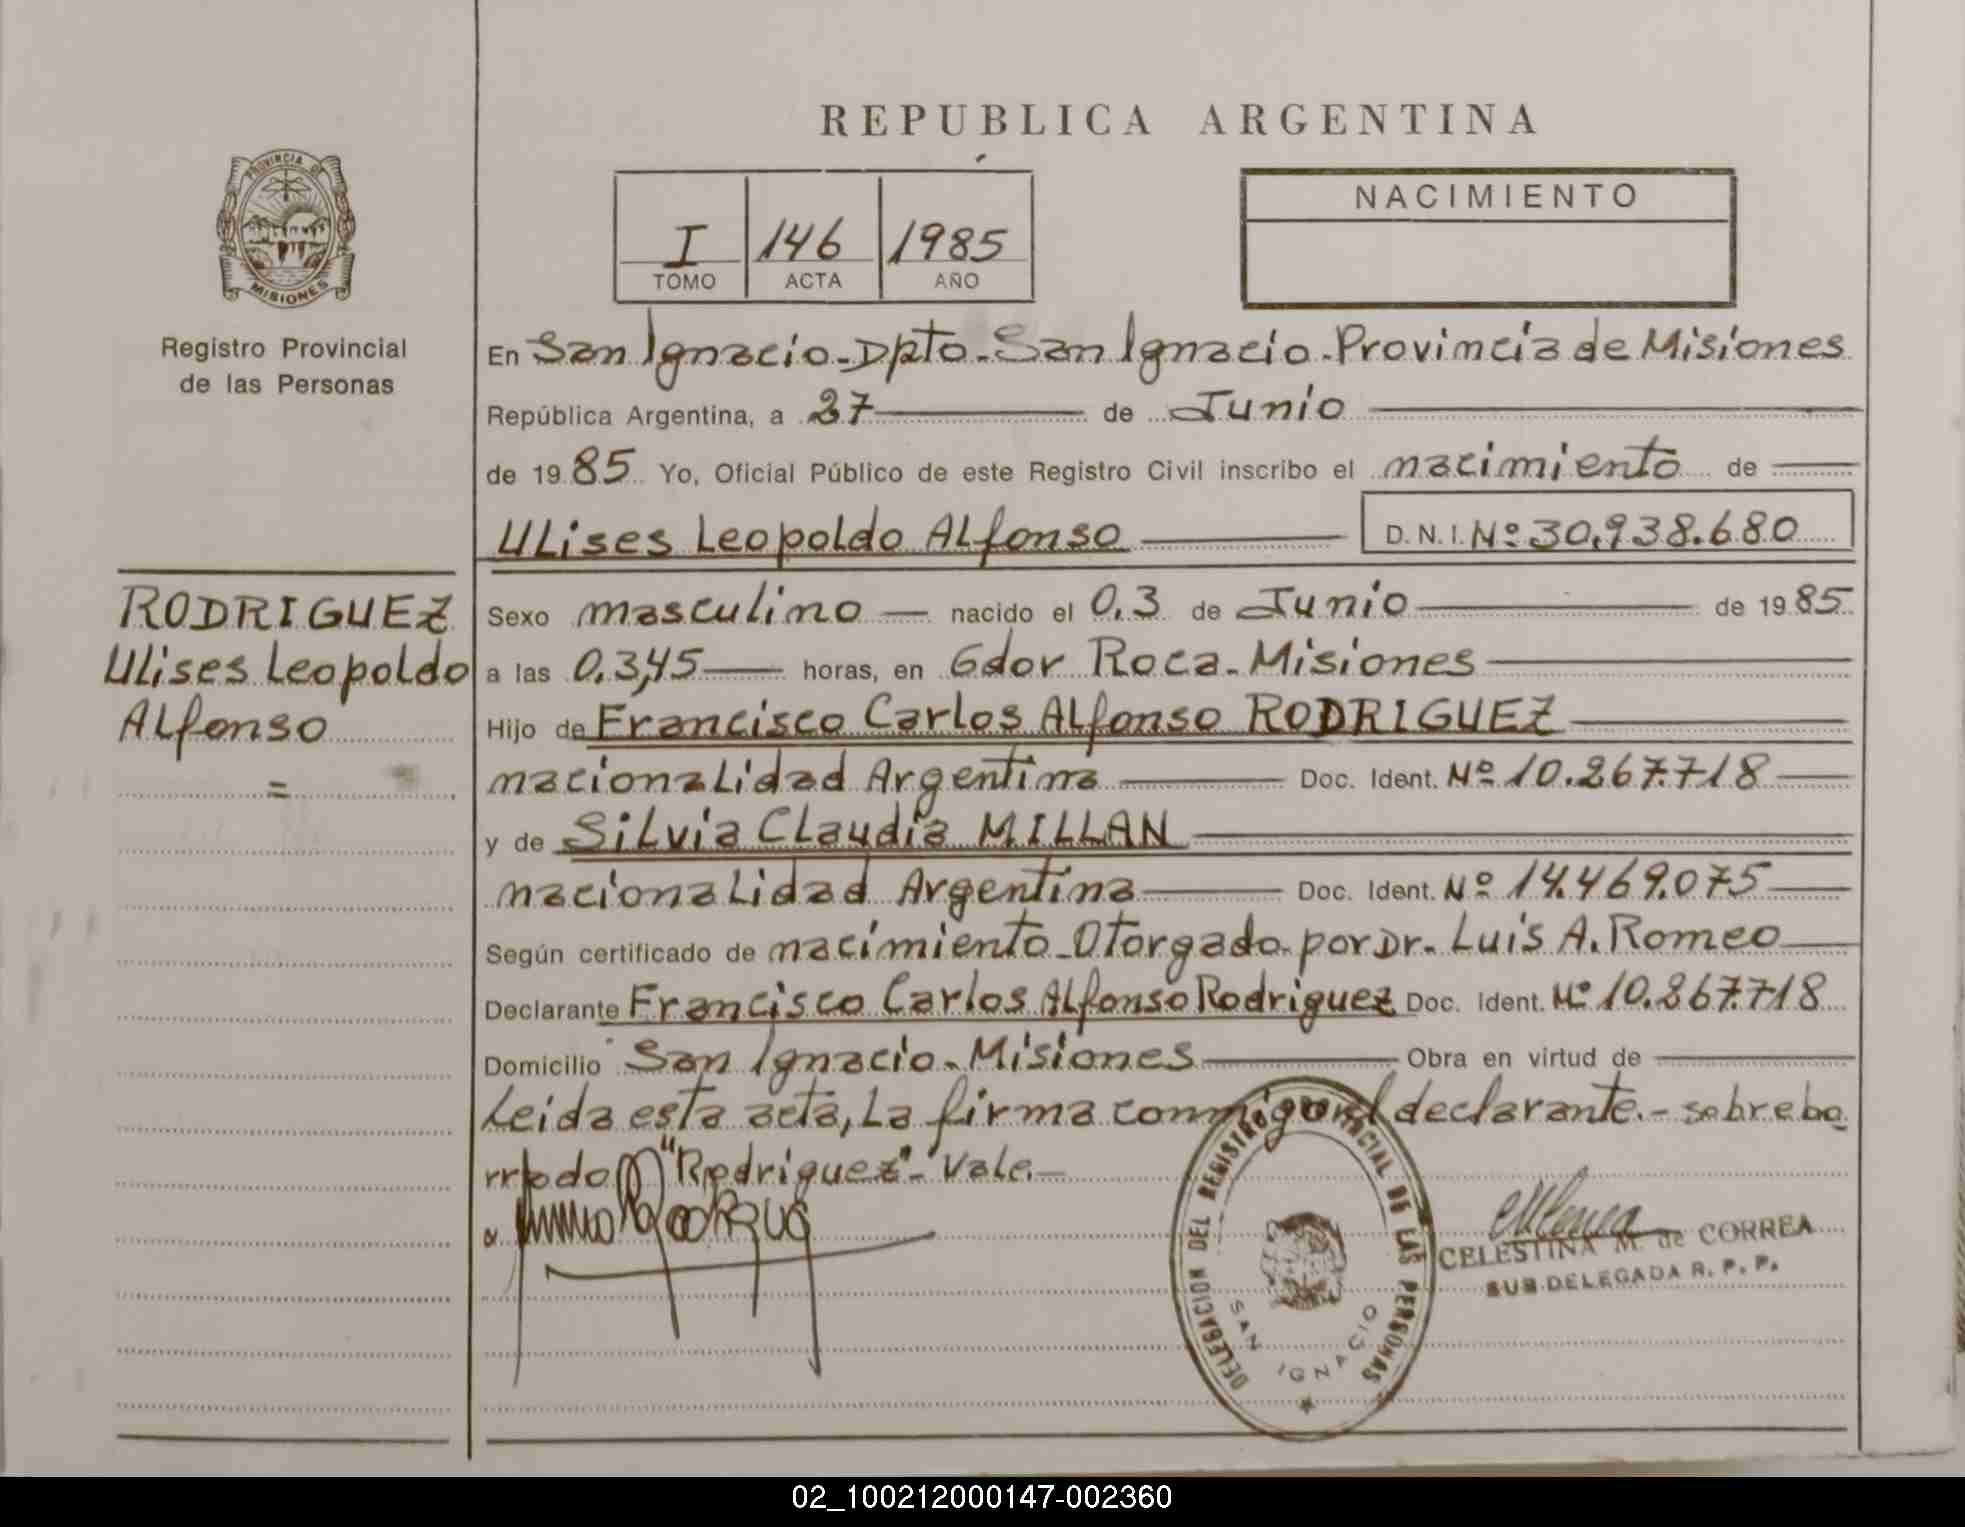 REPUBLICA ARGENTINA
PROVINCIA DE
MISIONES
Registro Provincial
de las Personas
I 146 1985
TOMO ACTA AÑO
NACIMIENTO
En San Ignacio-Dpto-San Ignacio-Provincia de Misiones
República Argentina, a 27 de Junio
de 1985 Yo, Oficial Público de este Registro Civil inscribo el nacimiento de
Ulises Leopoldo Alfonso D.N.I. Nº 30.938.680
RODRIGUEZ
Ulises Leopoldo
Alfonso
=
Sexo masculino nacido el 0.3 de Junio de 1985
a las 0.3,45 horas, en Gdor Roca-Misiones
Hijo de Francisco Carlos Alfonso RODRIGUEZ
nacionalidad Argentina Doc. Ident. Nº 10.267.718
y de Silvia Claudia MILLAN
nacionalidad Argentina Doc. Ident. Nº 14.469.075
Según certificado de nacimiento-Otorgado por Dr. Luis A. Romeo
Declarante Francisco Carlos Alfonso Rodriguez Doc. Ident. Nº 10.267.718
Domicilio San Ignacio-Misiones Obra en virtud de
Leida esta acta, La firma conmigo el declarante.- sobrebo
rrado "Rodriguez"- Vale.-
DELEGACION DEL REGISTRO PROVINCIAL DE LAS PERSONAS
SAN IGNACIO
CELESTINA M. de CORREA
SUB DELEGADA R. P. P.
02_100212000147-002360